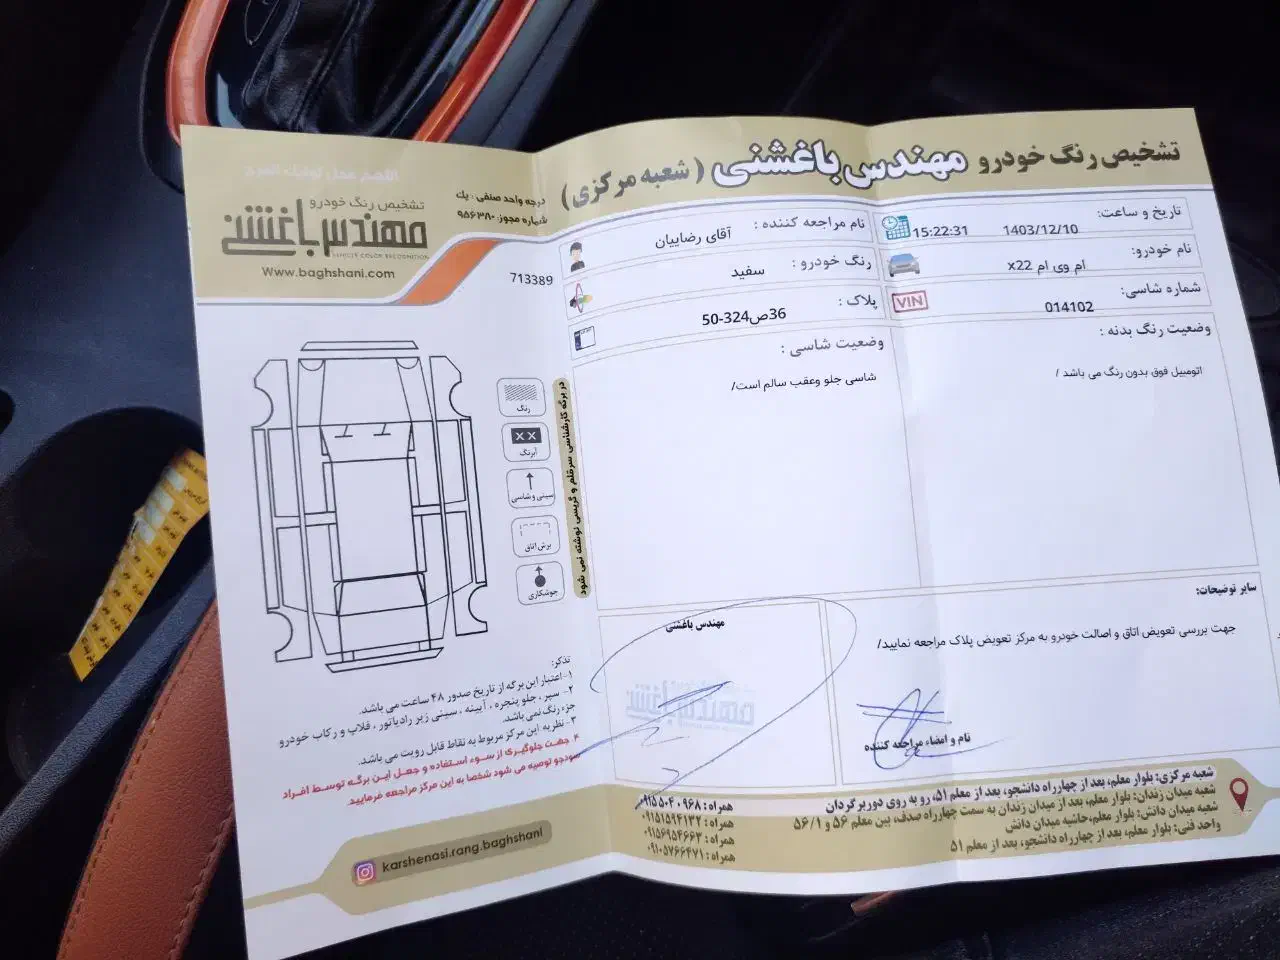 تشخیص رنگ خودرو مهندس باغشنی ( شعبه مرکزی )
درجه واحد صنفی : یک
شماره مجوز: ۹۵۶۳۸۰
تشخیص رنگ خودرو
مهندس باغشنی
VEHICLE COLOR RECOGNITION
Www.baghshani.com
713389
تاریخ و ساعت: 1403/12/10 15:22:31
نام مراجعه کننده : آقای رضاییان
نام خودرو: ام وی ام x22
رنگ خودرو : سفید
شماره شاسی: 014102
VIN
پلاک : 36ص324-50
وضعیت رنگ بدنه :
اتومبیل فوق بدون رنگ می باشد /
وضعیت شاسی :
شاسی جلو وعقب سالم است/
رنگ
آبرنگ
سینی و شاسی
برش اتاق
جوشکاری
در برگه کارشناسی سرقلم و گریسی نوشته نمی شود
سایر توضیحات:
جهت بررسی تعویض اتاق و اصالت خودرو به مرکز تعویض پلاک مراجعه نمایید/
نام و امضاء مراجعه کننده
مهندس باغشنی
تذکر:
۱-اعتبار این برگه از تاریخ صدور ۴۸ ساعت می باشد.
۲- سپر ، جلو پنجره ، آیینه ، سینی زیر رادیاتور ، قلاب و رکاب خودرو
جزء رنگ نمی باشد.
۳-نظریه این مرکز مربوط به نقاط قابل رویت می باشد.
۴ جهت جلوگیری از سوء استفاده و جعل این برگه توسط افراد
سودجو توصیه می شود شخصا به این مرکز مراجعه فرمایید.
karshenasi.rang.baghshani
همراه : ۰۹۱۵۵۰۴۰۹۶۸
همراه : ۰۹۱۵۱۵۹۴۱۳۲
همراه : ۰۹۱۵۶۹۵۴۶۶۳
همراه : ۰۹۱۰۵۷۶۶۴۷۱
شعبه مرکزی: بلوار معلم، بعد از چهارراه دانشجو، بعد از معلم ۵۱، رو به روی دوربرگردان
شعبه میدان زندان: بلوار معلم، بعد از میدان زندان به سمت چهارراه صدف، بین معلم ۵۶ و ۵۶/۱
شعبه میدان دانش: بلوار معلم، حاشیه میدان دانش
واحد فنی: بلوار معلم، بعد از چهارراه دانشجو، بعد از معلم ۵۱